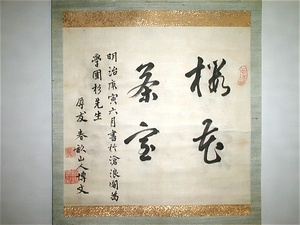 櫻花
茶室
明治庚寅六月書於滄浪閣為
學圃杉先生
友 春畝山人博文